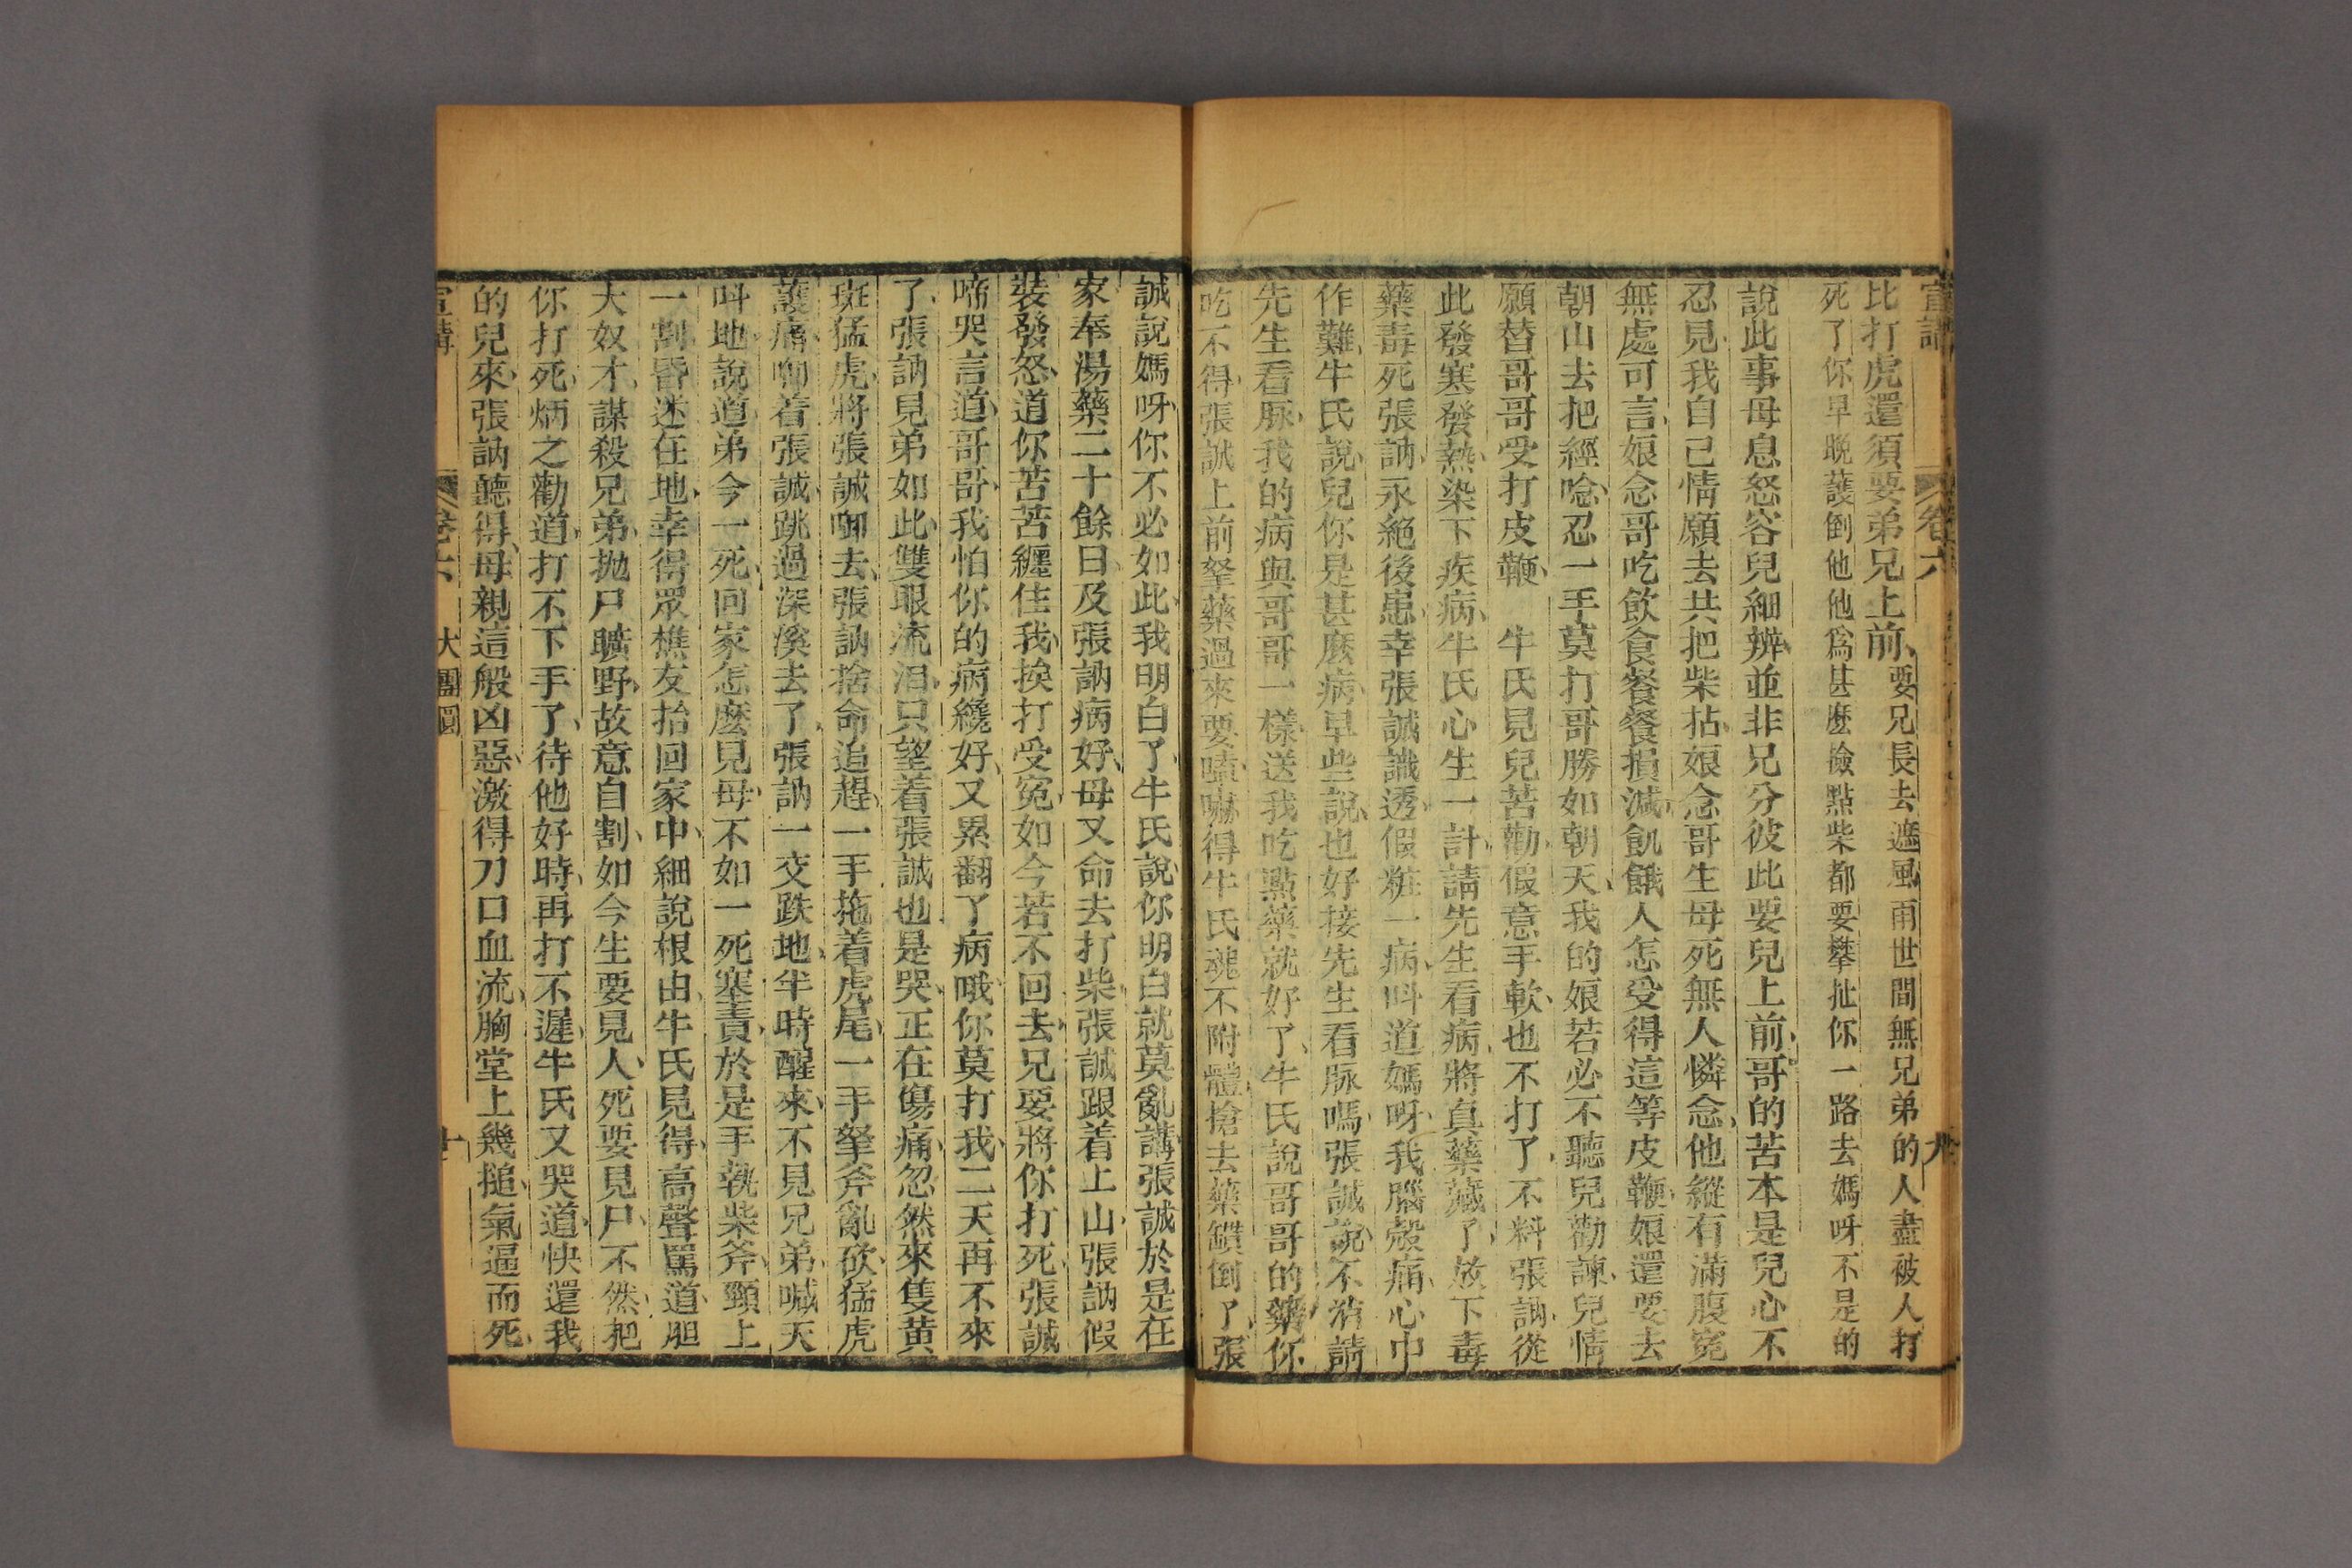 宣講 卷六 九
比打虎還須要弟兄上前要兄長去遮風雨世間無兄弟的人盡被人打
死了你早晚護倒他他爲甚麼撿點柴都要攀扯你一路去媽呀不是的
說此事母息怒容兒細辨並非兄分彼此要兒上前哥的苦本是兒心不
忍見我自己情願去共把柴拈娘念哥生母死無人憐念他縱有滿腹寃
無處可言娘念哥吃飲食餐餐損減飢餓人怎受得這等皮鞭娘還要去
朝山去把經唸忍一手莫打哥勝如朝天我的娘若必不聽兒勸諫兒情
願替哥哥受打皮鞭 牛氏見兒苦勸假意手軟也不打了不料張訥從
此發寒發熱染下疾病牛氏心生一計請先生看病將真藥藏了放下毒
藥毒死張訥永絕後患幸張誠識透假粧一病呌道媽呀我腦殼痛心中
作難牛氏說兒你是甚麽病早些說也好接先生看脉嗎張誠說不消請
先生看脉我的病與哥哥一樣送我吃點藥就好了牛氏說哥哥的藥你
吃不得張誠上前拏藥過來要嗑嚇得牛氏魂不附體搶去藥鑵倒了張
誠說媽呀你不必如此我明白了牛氏說你明白就莫亂講張誠於是在
家奉湯藥二十餘日及張訥病好母又命去打柴張誠跟着上山張訥假
裝發怒道你苦苦纏住我挨打受寃如今若不回去兄要將你打死張誠
啼哭言道哥哥我怕你的病纔好又累翻了病哦你莫打我二天再不來
了張訥見弟如此雙眼流泪只望着張誠也是哭正在傷痛忽然來隻黄
斑猛虎將張誠啣去張訥捨命追趕一手拖着虎尾一手拏斧亂砍猛虎
護痛啣着張誠跳過深溪去了張訥一交跌地半時醒來不見兄弟喊天
呌地說道弟今一死回家怎麽見母不如一死塞責於是手執柴斧頸上
一割昏迷在地幸得眾樵友抬回家中細說根由牛氏見得高聲罵道胆
大奴才謀殺兄弟拋尸曠野故意自割如今生要見人死要見尸不然把
你打死炳之勸道打不下手了待他好時再打不遲牛氏又哭道快還我
的兒來張訥聽得母親這般凶惡激得刀口血流胸堂上幾搥氣逼而死
宣講 卷六 大團圓